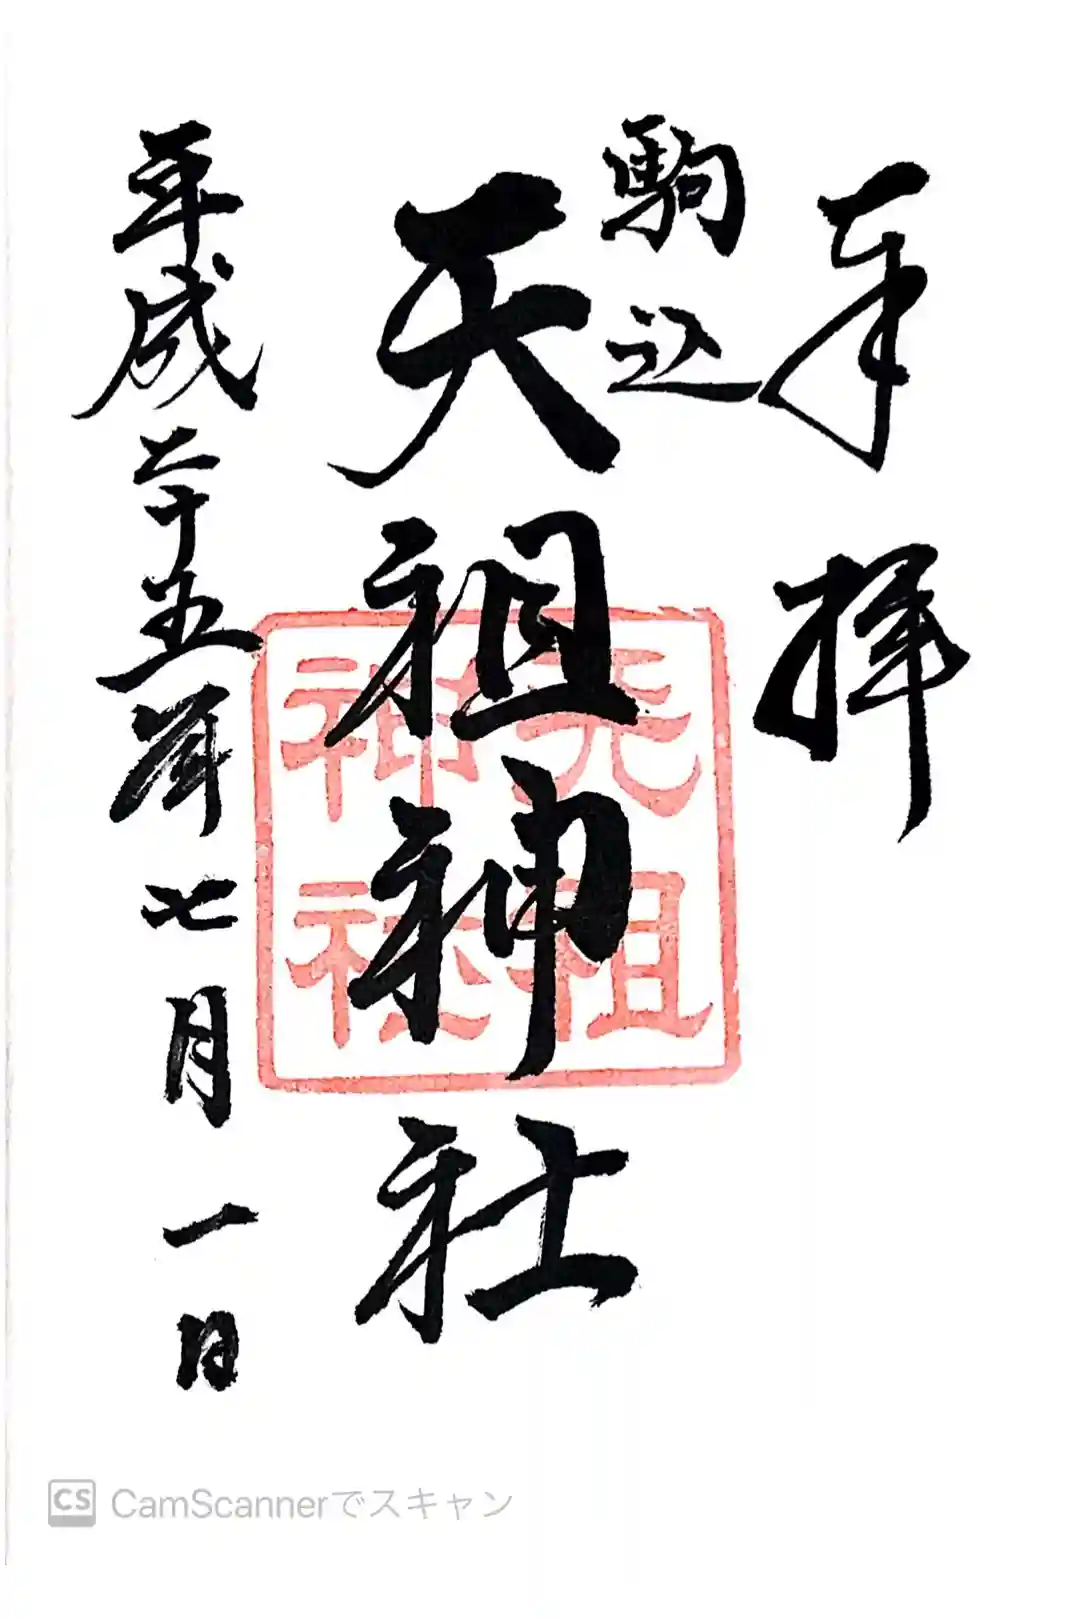 奉拝
駒込
天祖神社
天祖
神社
平成二十五年七月一日
CS CamScannerでスキャン